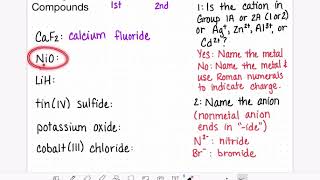 Compounds 1st 2nd
CaF₂: calcium fluoride
NiO:
LiH:
tin(IV) sulfide:
potassium oxide:
cobalt(III) chloride:
1: Is the cation in
Group 1A or 2A (1 or 2)
or Ag⁺, Zn²⁺, Al³⁺, or
Cd²⁺?
Yes: Name the metal
No: Name the metal &
use Roman numerals
to indicate charge.
2: Name the anion
(nonmetal anion
ends in "-ide")
N³⁻ nitride
Br⁻ bromide